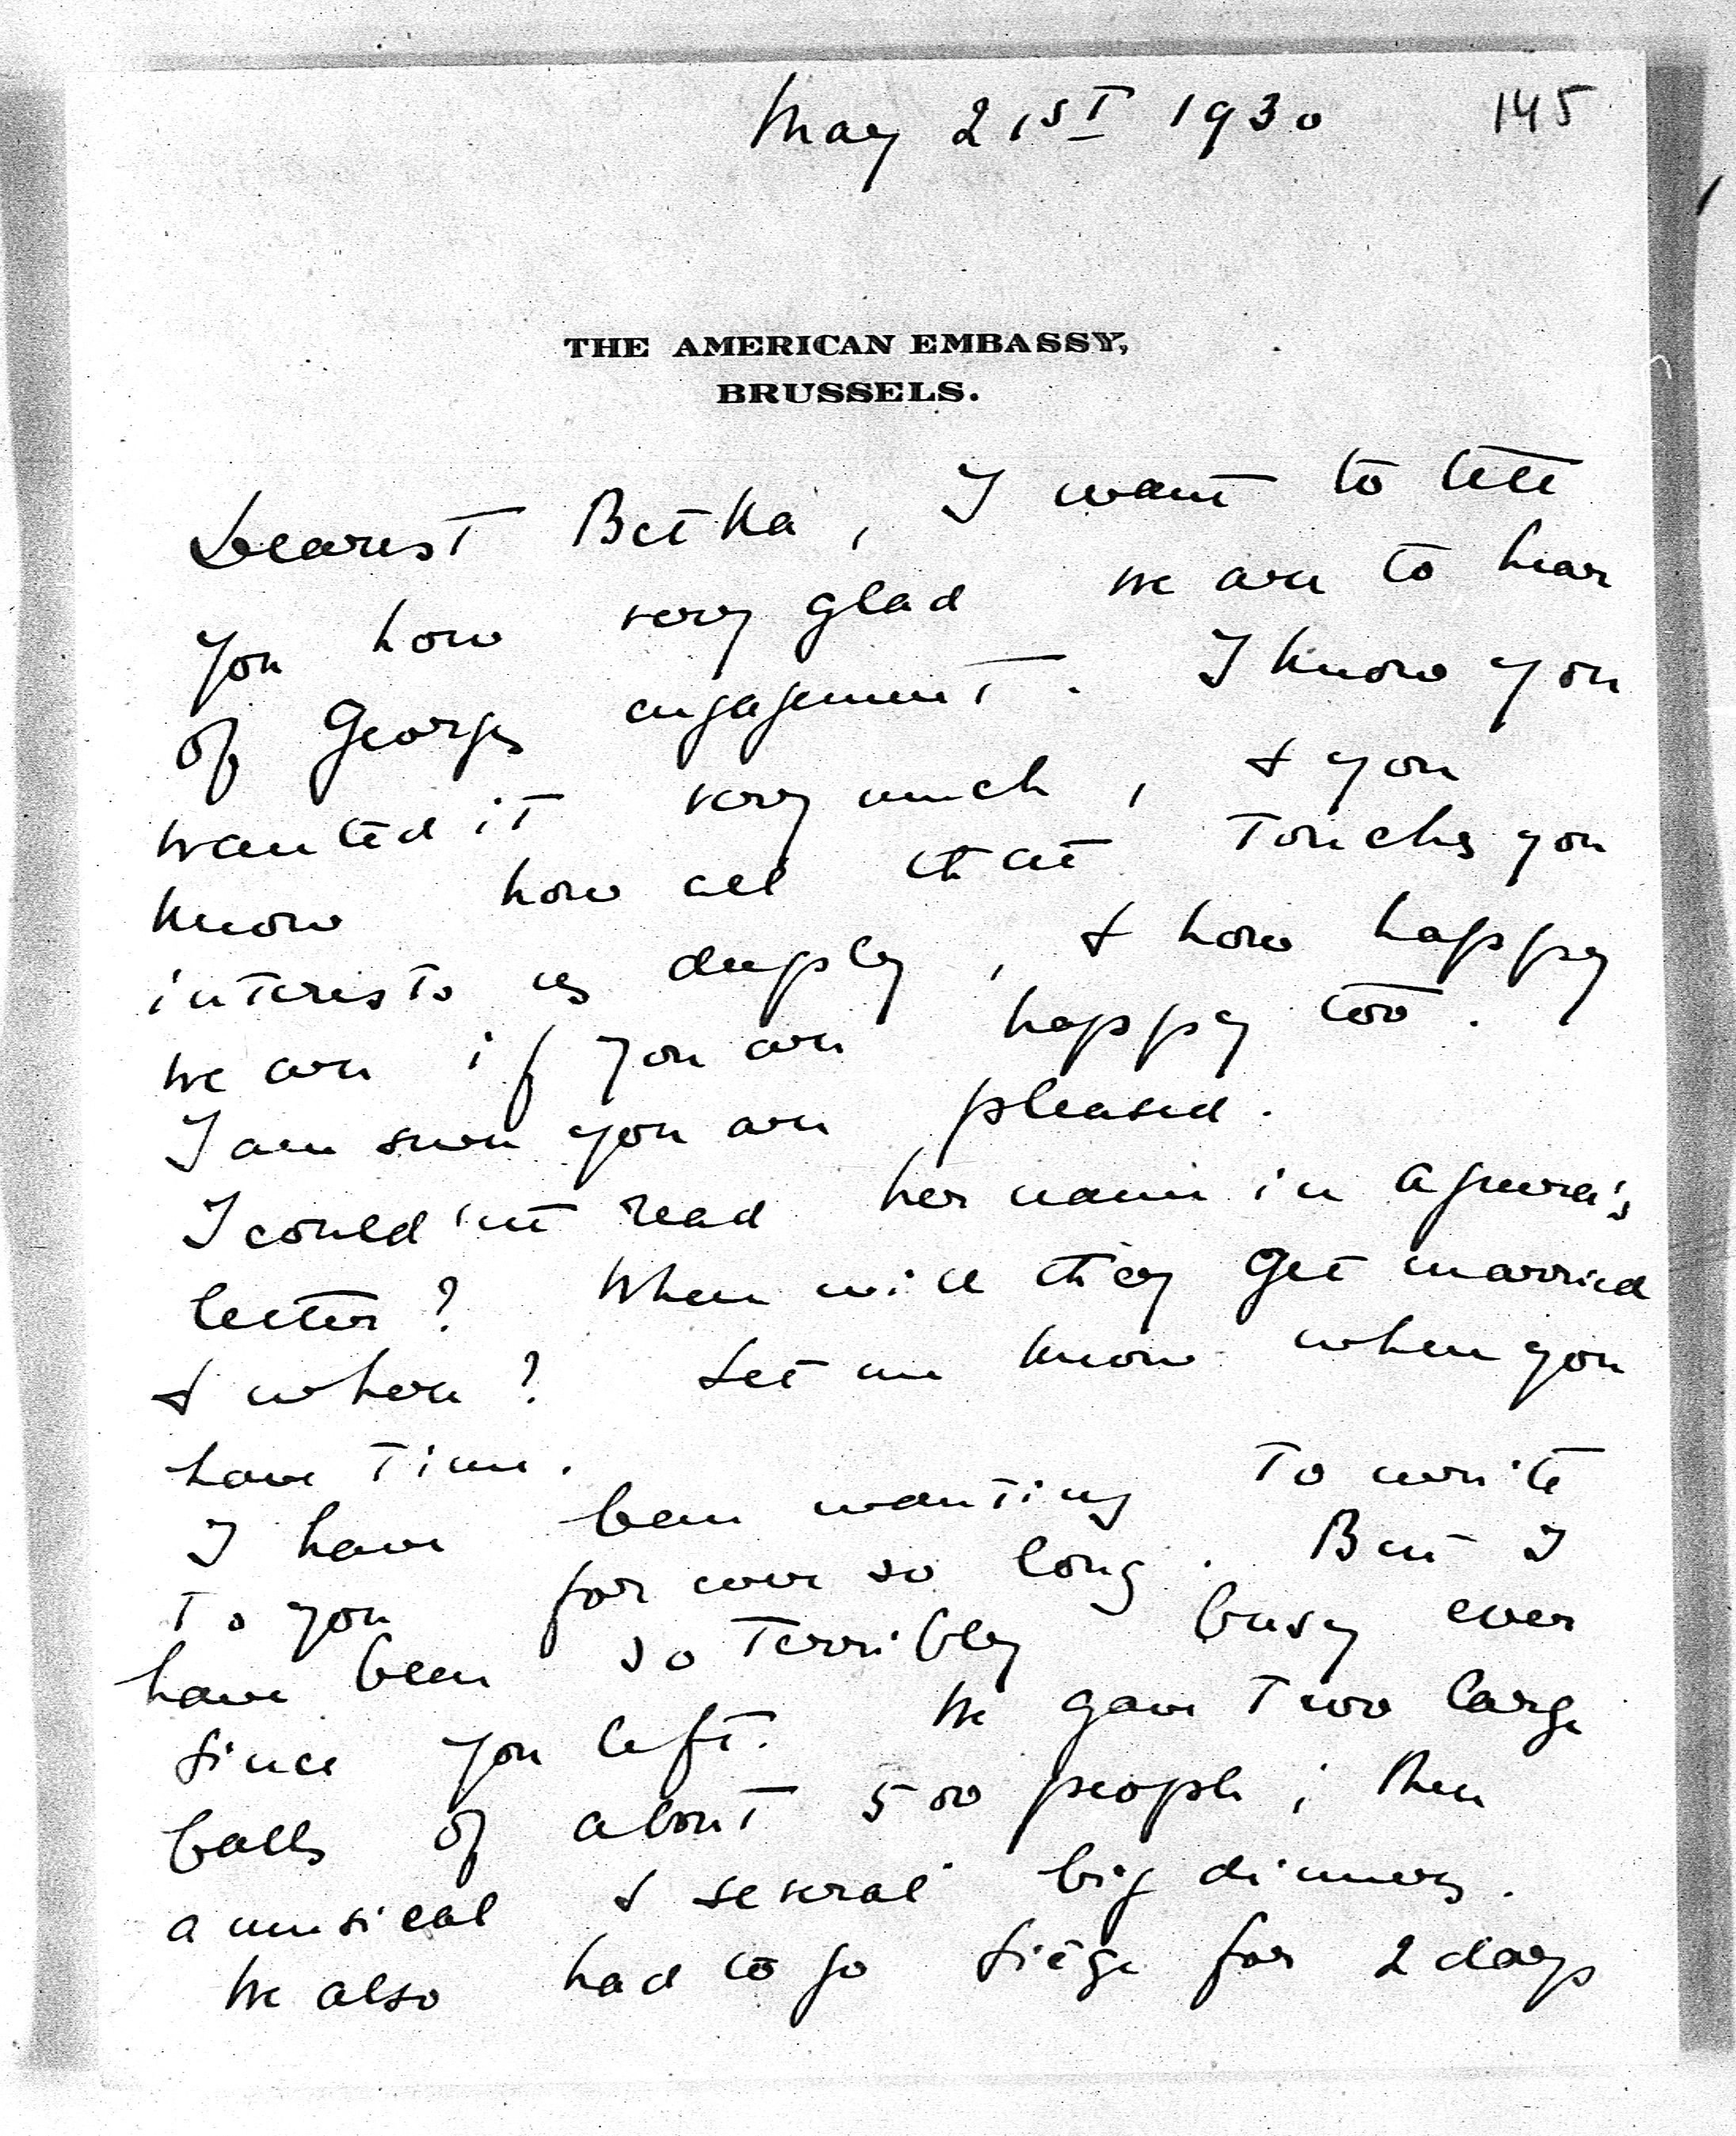 May 21st 1930 145
THE AMERICAN EMBASSY,
BRUSSELS.
Dearest Betka, I want to tell
you how very glad we are to hear
of Georges engagement. I know you
wanted it very much, & you
know how all that touches you
interests us deeply, & how happy
we are if you are happy too.
I am sure you are pleased.
I could'nt read her name in
letter? When will they get married
& where? Let me know when you
have time.
I have been wanting to write
to you for ever so long. But I
have been so terribly busy ever
since you left. We gave two large
balls of about 500 people; then
a musical & several big dinners.
We also had to go Liége for 2 days